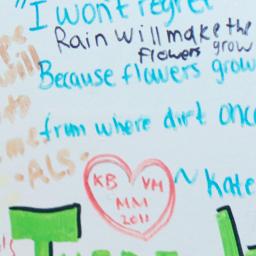 "I won't regret
Rain will make the
flowers grow
Because flowers grow
from where dirt once
ALS.
KB VM
MM
2011
~Kate